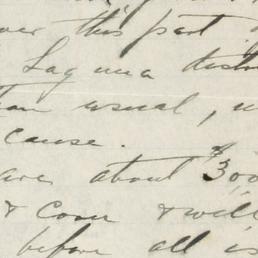 over this part
Laguna
than usual,
cause.
are about $300
& Corn & will
before all is